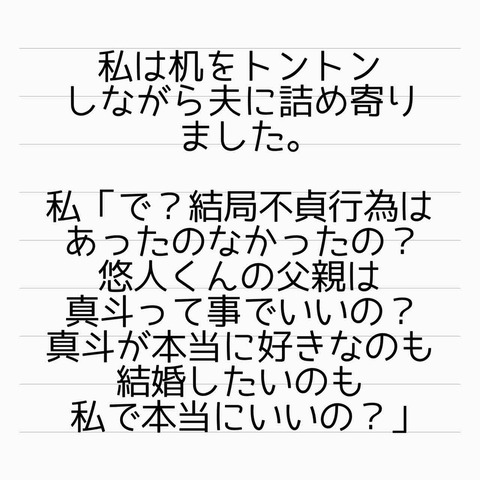 私は机をトントン
しながら夫に詰め寄り
ました。
私「で？結局不貞行為は
あったのなかったの？
悠人くんの父親は
真斗って事でいいの？
真斗が本当に好きなのも
結婚したいのも
私で本当にいいの？」